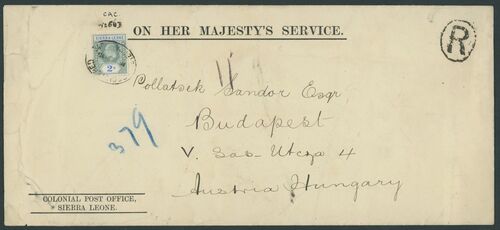 CAC
ON HER MAJESTY'S SERVICE.
SIERRA LEONE
R
Pollatsek Sandor Esqr
Budapest
379
V. Sas-Utcza 4
Austria Hungary
COLONIAL POST OFFICE,
SIERRA LEONE.